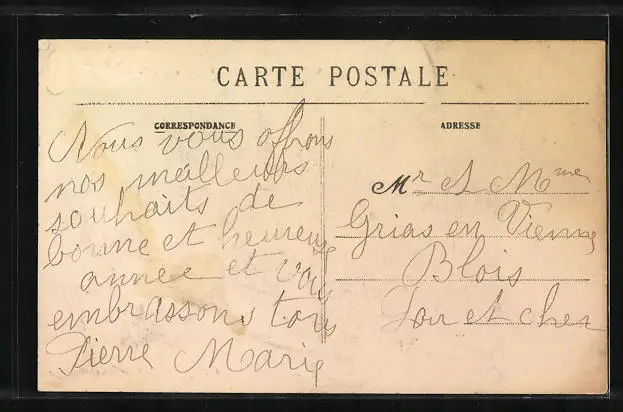 CARTE POSTALE
CORRESPONDANCE
Nous vous offrons
nos meilleurs
souhaits de
bonne et heureuse
année et vous
embrassons tous
Pierre Marie
ADRESSE
Mr et Mme
Grias en Vienne
Blois
Loir et cher